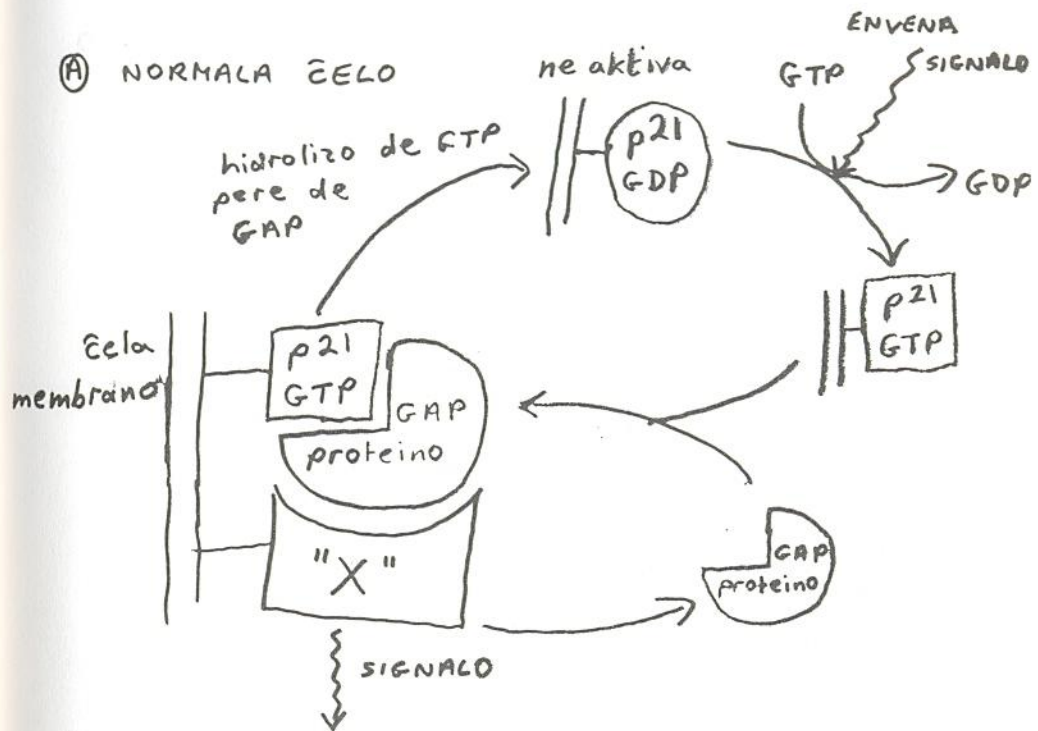 Ⓐ NORMALA ĈELO
ne aktiva
ENVENA
SIGNALO
GTP
GDP
hidrolizo de GTP
pere de
GAP
p21
GDP
p21
GTP
ĉela
membrano
p21
GTP
GAP
proteino
"X"
GAP
proteino
SIGNALO